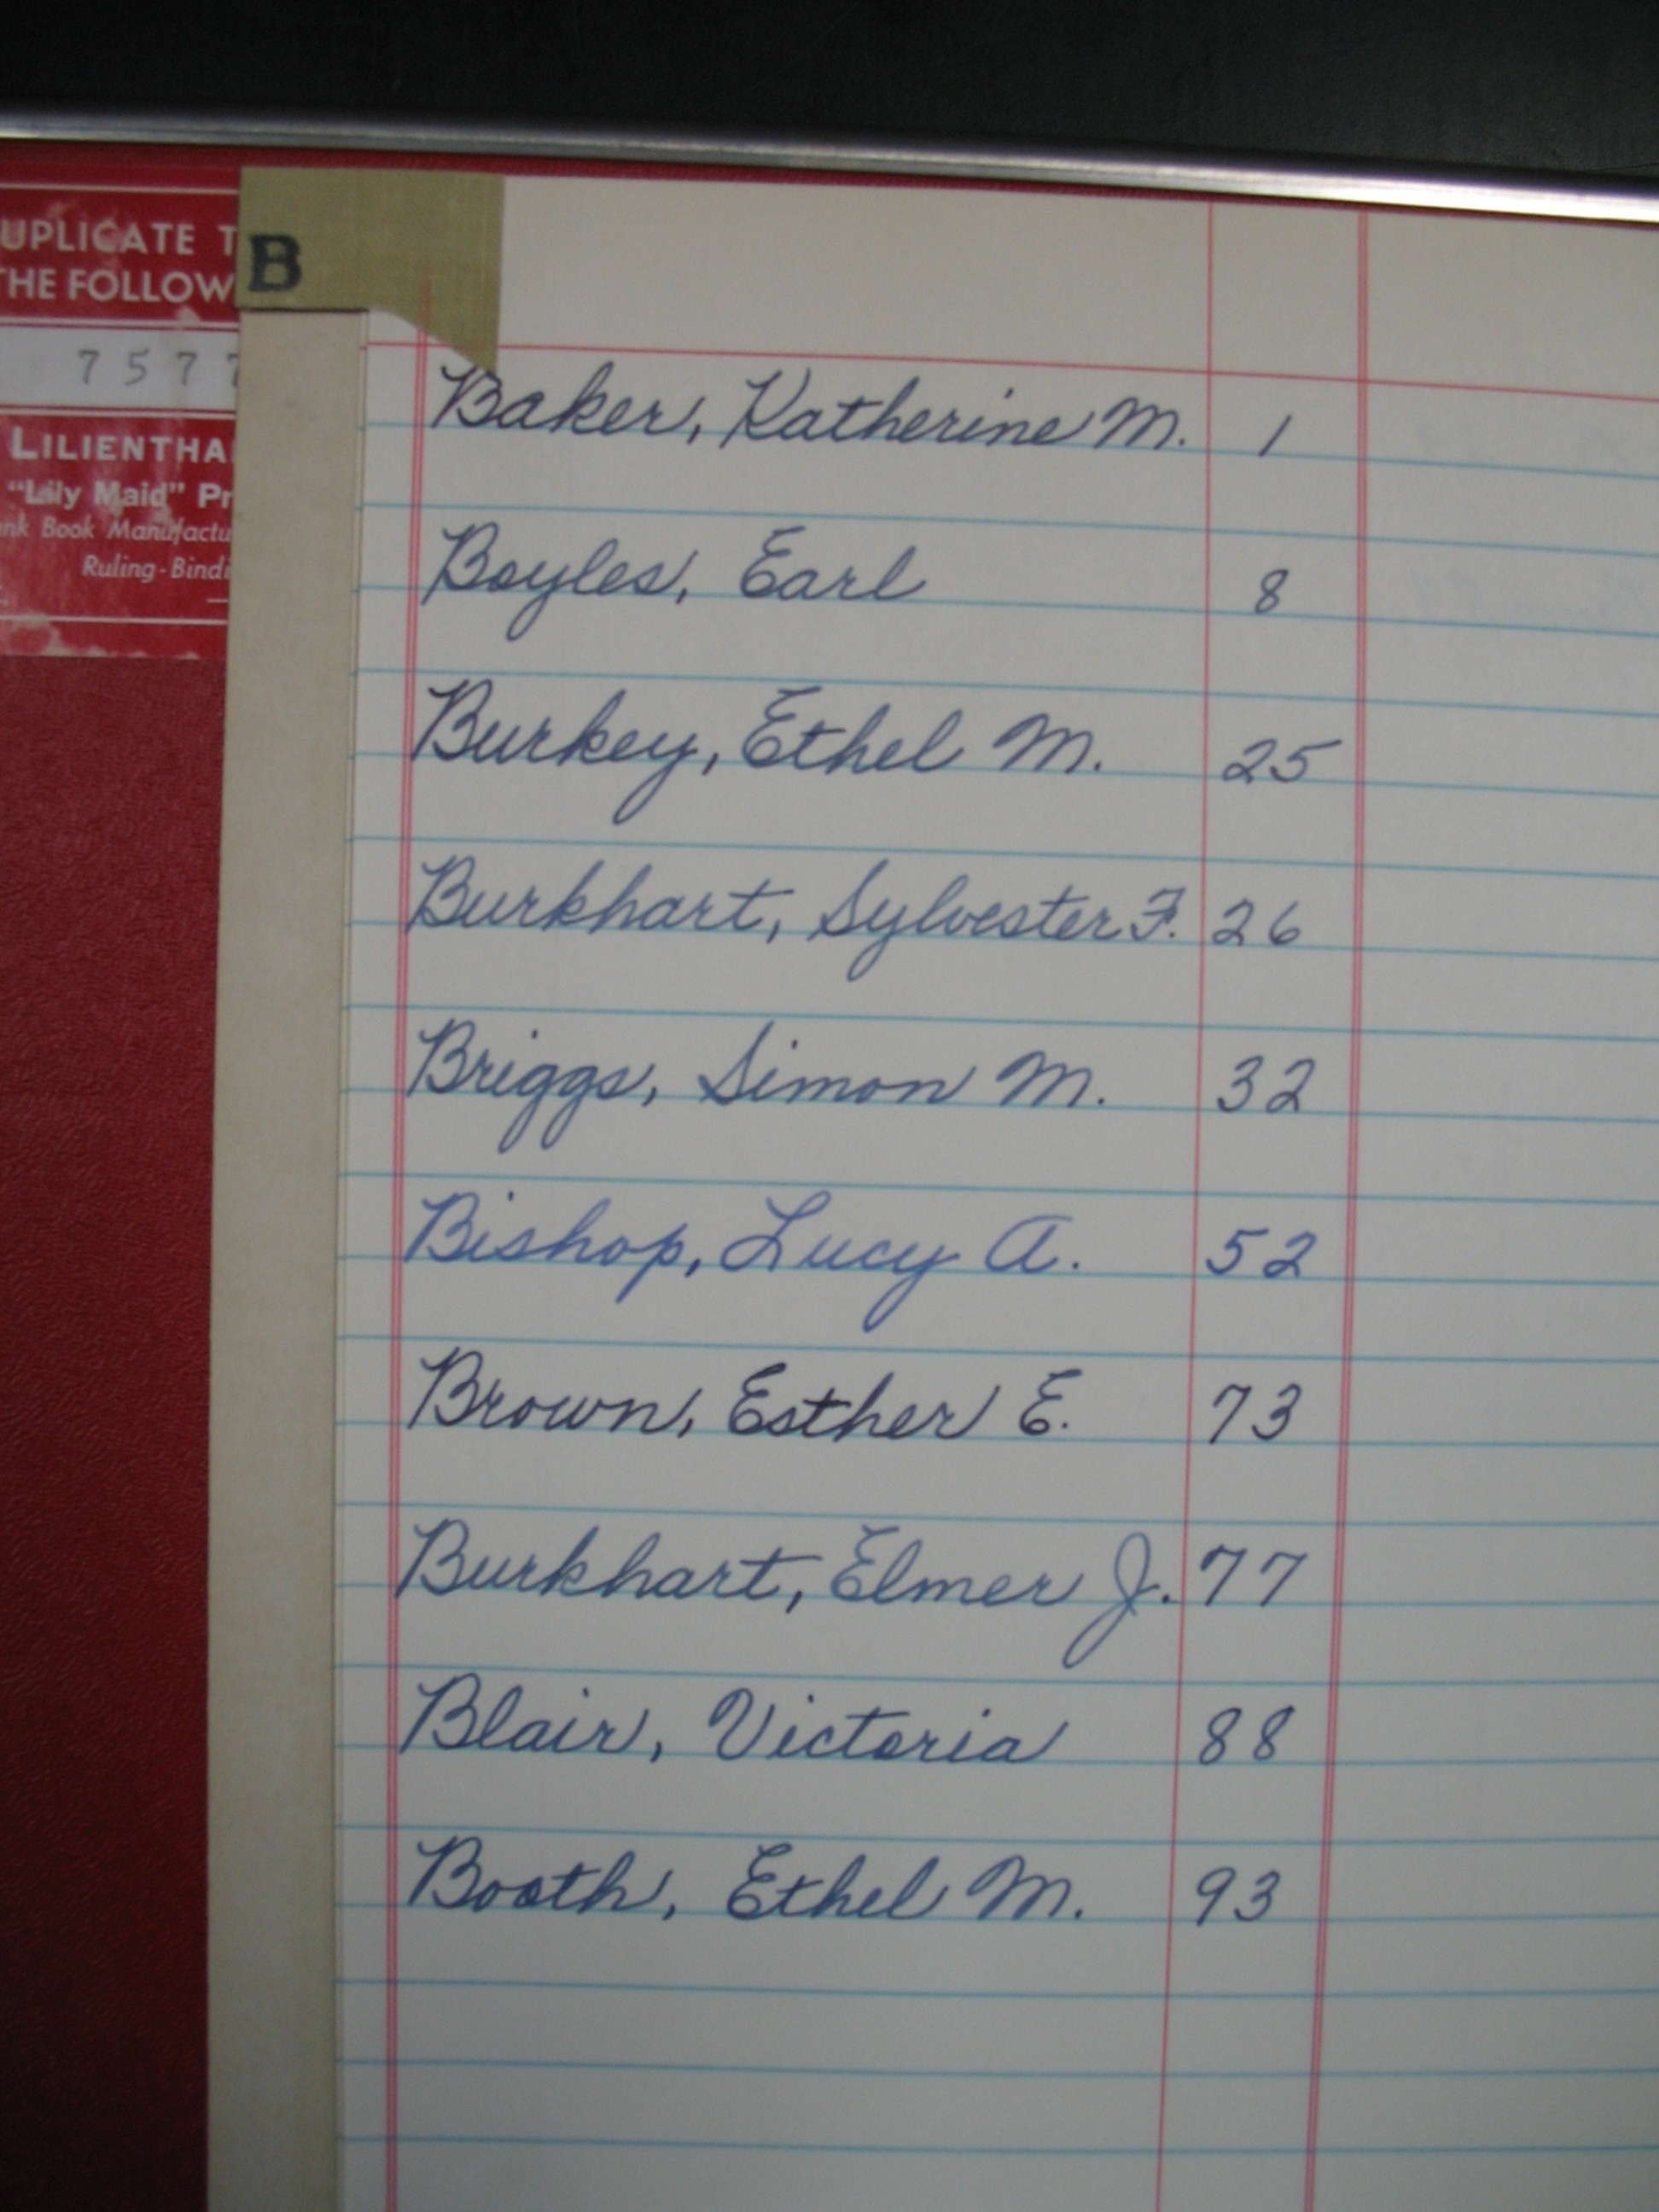 UPLICATE T
THE FOLLOW
7577
LILIENTHA
"Lily Maid" Pr
nk Book Manufactu
Ruling-Bindi
B
Baker, Katherine M. 1
Boyles, Earl 8
Burkey, Ethel M. 25
Burkhart, Sylvester F. 26
Briggs, Simon M. 32
Bishop, Lucy A. 52
Brown, Esther E. 73
Burkhart, Elmer J. 77
Blair, Victoria 88
Booth, Ethel M. 93